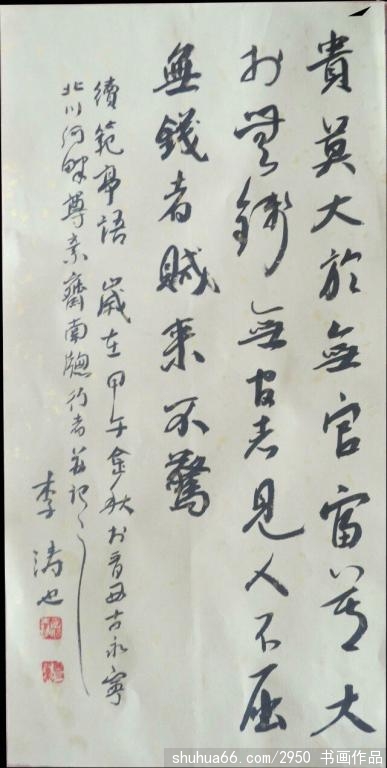 貴莫大於無官富莫大
於無錢無官者見人不屈
無錢者賊來不驚
續範亭語 歲在甲午金秋於晉西古永寧
北川河畔尊素齋南牕行者並記
李濤也
shuhua66.com/2950 书画作品